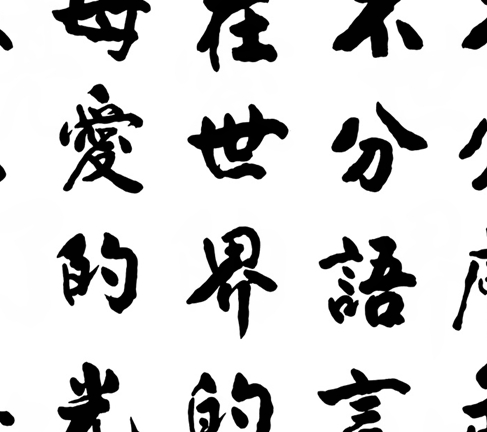 不分語言
在世界的
母愛的光